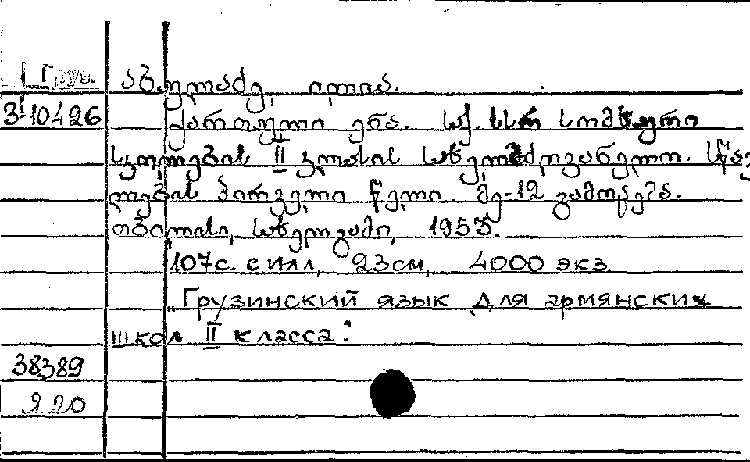 1 Груз
აბულაძე, ილია.
3-10426
ქართული ენა. საქ. სსრ სომხური
სკოლების II კლასის სახელმძღვანელო. სწავ
ლების პირველი წელი. მე-12 გამოცემა.
თბილისი, სახელგამი, 1955.
107с. с илл, 23см, 4000 экз
„Грузинский язык для армянских
школ II класса."
38389
220